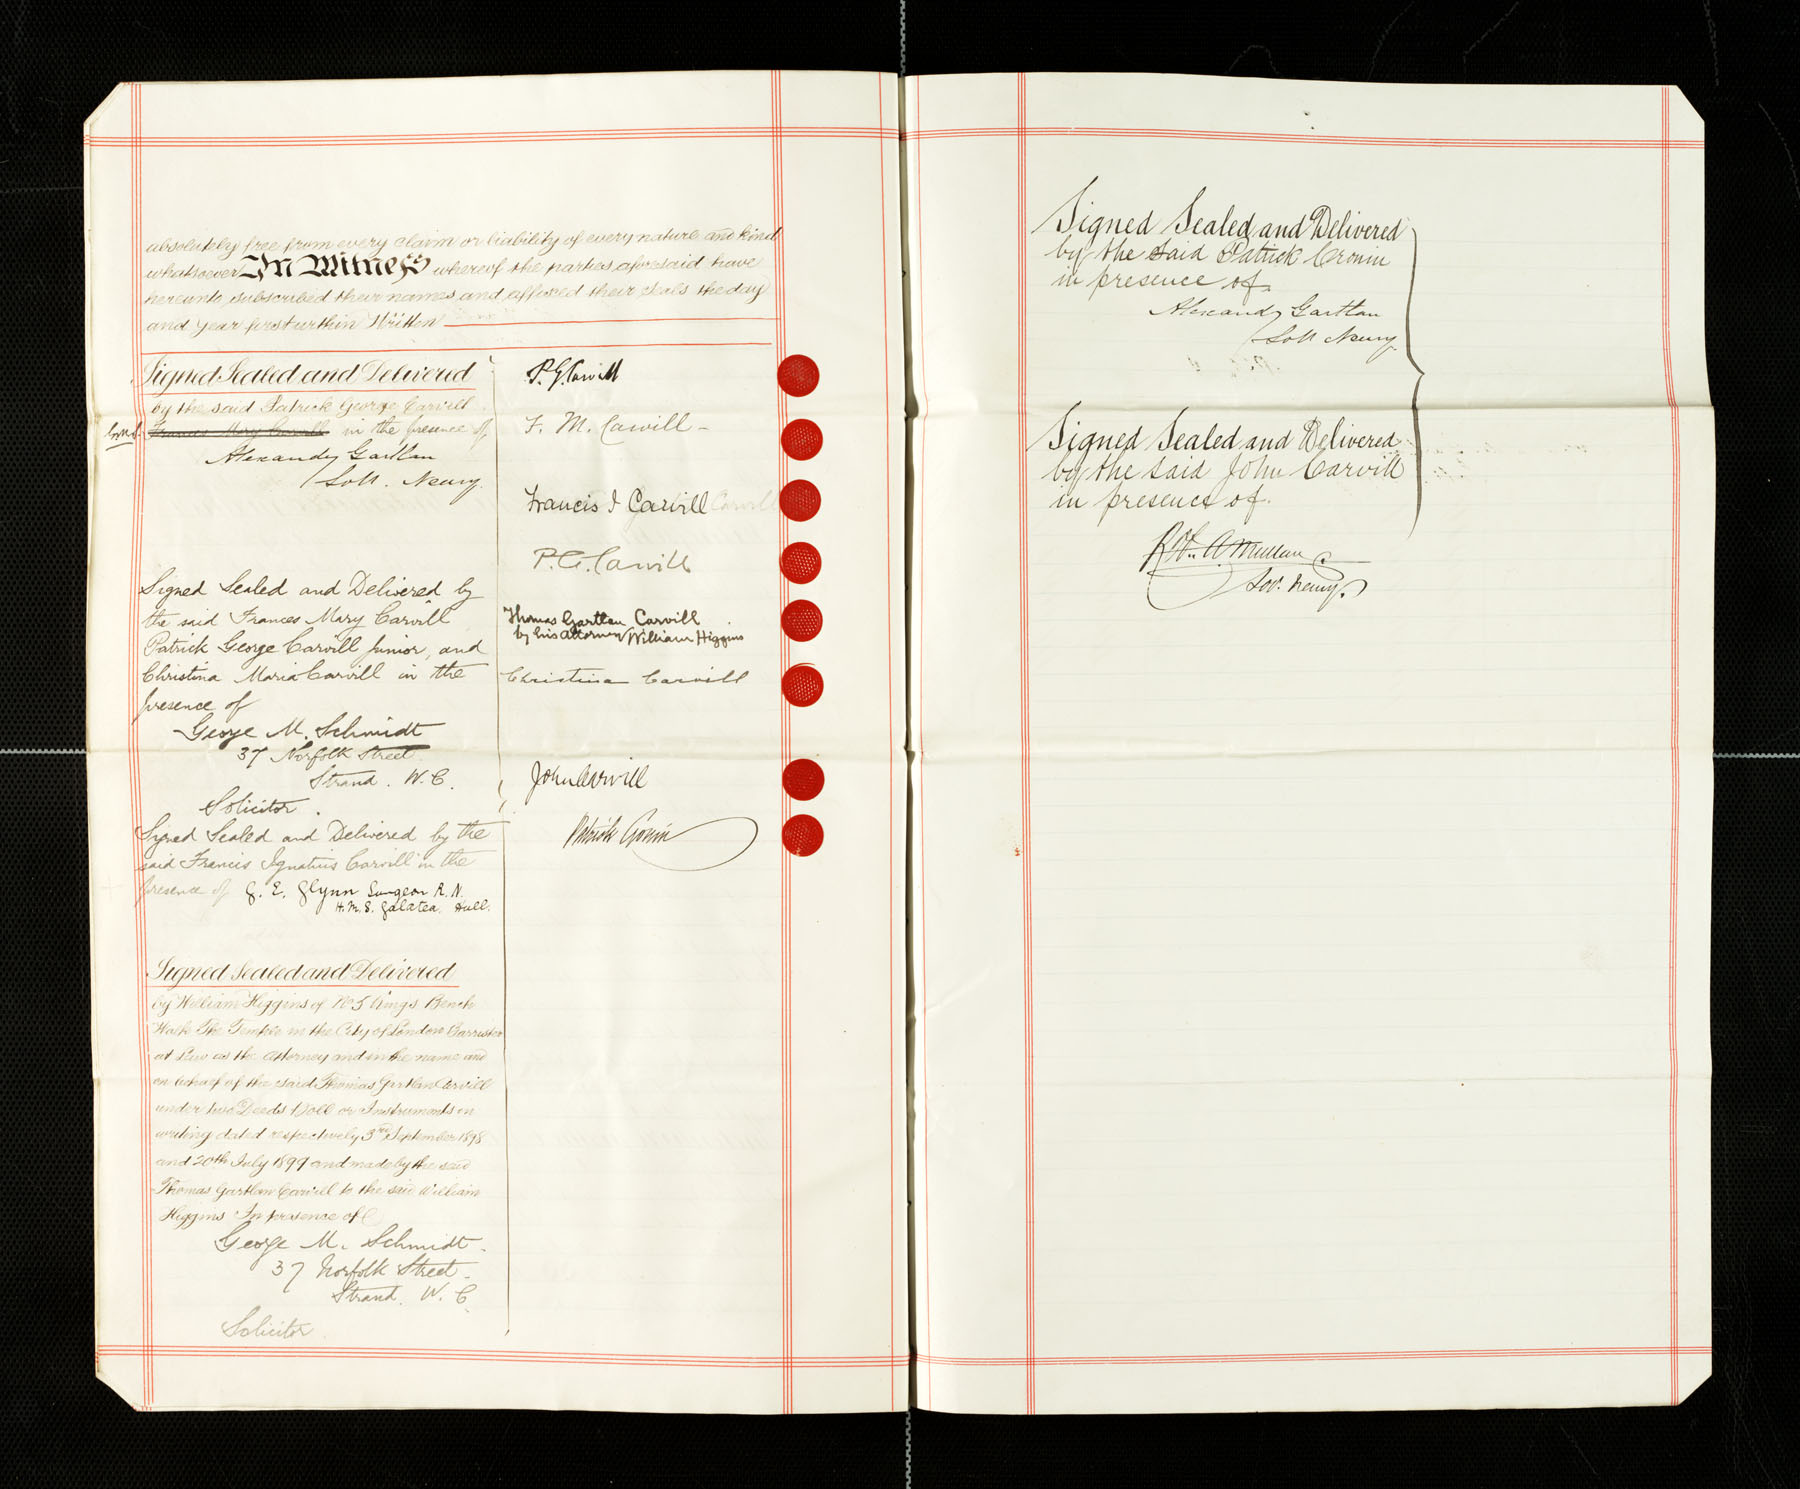 absolutely free from every claim or liability of every nature and kind
whatsoever In Witness whereof the parties aforesaid have
hereunto subscribed their names and affixed their seals the day
and year first within Written
Signed Sealed and Delivered
by the said Patrick George Carvill
Frances Mary Carvill in the presence of
Alexandr Gartlan
Solr. Newry.
P. G. Carvill
F. M. Carvill
Francis I Carvill Carvill
P. G. Carvill
Thomas Gartlan Carvill
by his attorney William Higgins
Christina Carvill
John Carvill
Patrick Cronin
Signed Sealed and Delivered by
the said Frances Mary Carvill
Patrick George Carvill Junior, and
Christina Maria Carvill in the
presence of
George M. Schmidt
37 Norfolk Street
Strand. W. C.
Solicitor.
Signed Sealed and Delivered by the
said Francis Ignatius Carvill in the
presence of G. E. Glynn Surgeon R.N.
H.M.S. Galatea. Hull.
Signed Sealed and Delivered
by William Higgins of No 5 Kings Bench
Walk The Temple in the City of London Barrister
at Law as the attorney and in the name and
on behalf of the said Thomas Gartlan Carvill
under two Deeds Poll or Instruments in
writing dated respectively 3rd September 1898
and 20th July 1899 and made by the said
Thomas Gartlan Carvill to the said William
Higgins In presence of
George M. Schmidt.
37 Norfolk Street.
Strand. W. C.
Solicitor.
Signed Sealed and Delivered
by the said Patrick Cronin
in presence of
Alexandr Gartlan
Solr Newry.
Signed Sealed and Delivered
by the said John Carvill
in presence of.
Mullan
Sor. Newry.